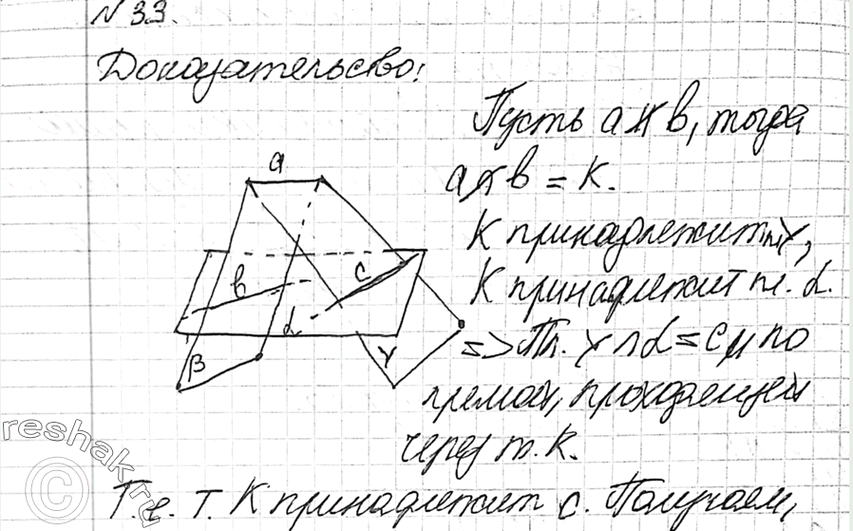 № 33.
Доказательство:
Пусть a ∦ b, тогда
a ∩ b = K.
K принадлежит пл. γ,
K принадлежит пл. α.
=> Пл. γ ∩ α = c и по
прямой, проходящей
через т. K.
a
b
c
α
β
γ
Т.е. т. K принадлежит c. Получаем,
reshak.ru
©